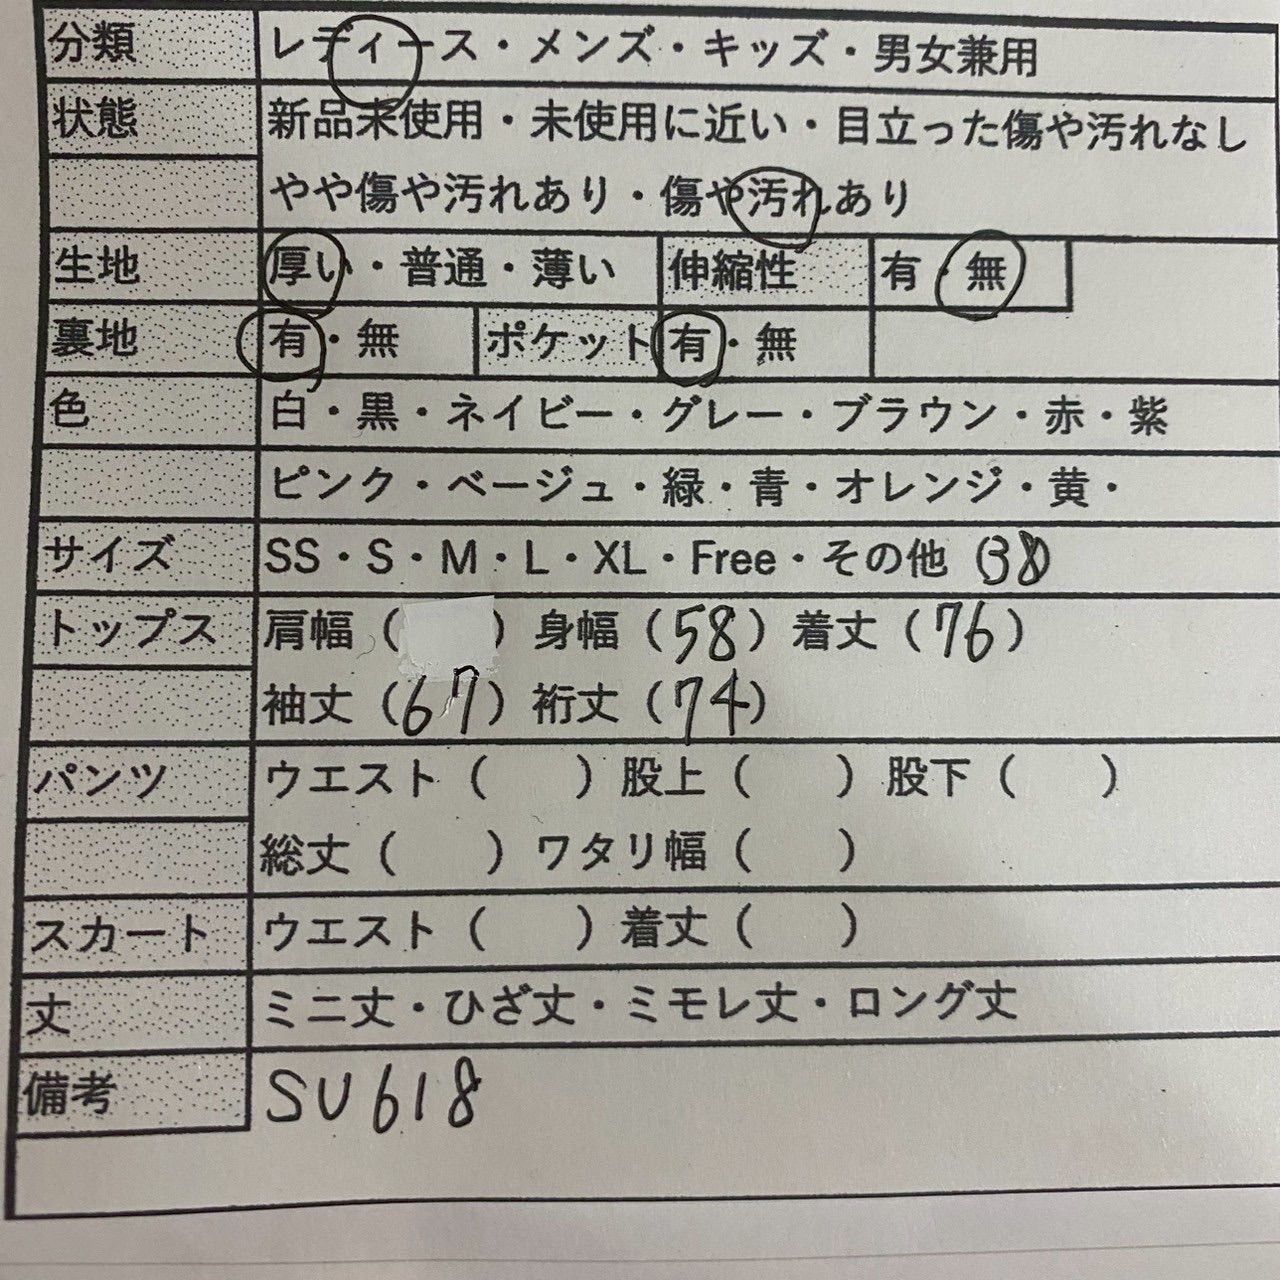 分類 レディース・メンズ・キッズ・男女兼用
状態 新品未使用・未使用に近い・目立った傷や汚れなし
やや傷や汚れあり・傷や汚れあり
生地 厚い・普通・薄い 伸縮性 有・無
裏地 有・無 ポケット 有・無
色 白・黒・ネイビー・グレー・ブラウン・赤・紫
ピンク・ベージュ・緑・青・オレンジ・黄・
サイズ SS・S・M・L・XL・Free・その他 (38)
トップス 肩幅( ) 身幅(58) 着丈(76)
袖丈(67) 裄丈(74)
パンツ ウエスト( ) 股上( ) 股下( )
総丈( ) ワタリ幅( )
スカート ウエスト( ) 着丈( )
丈 ミニ丈・ひざ丈・ミモレ丈・ロング丈
備考 SU618